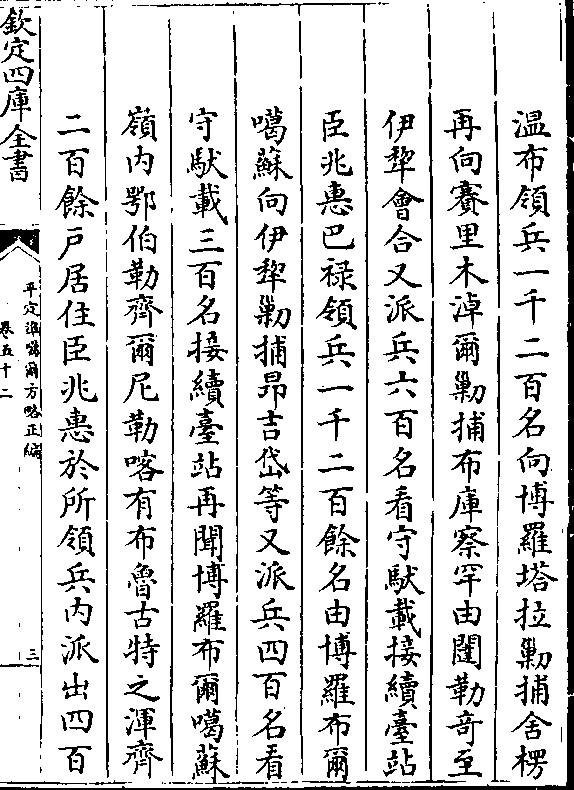 温布領兵一千二百名向博羅塔拉勦捕舍楞
再向賽里木淖爾勦捕布庫察罕由闥勒奇至
伊犂會合又派兵六百名看守馱載接續臺站
臣兆惠巴禄領兵一千二百餘名由博羅布爾
噶蘇向伊犂勦捕昂吉岱等又派兵四百名看
守馱載三百名接續臺站再聞博羅布爾噶蘇
嶺内鄂伯勒齊爾尼勒喀有布魯古特之渾齊
二百餘戸居住臣兆惠於所領兵内派出四百
欽定四庫全書
平定準噶爾方略正編
卷五十二
三